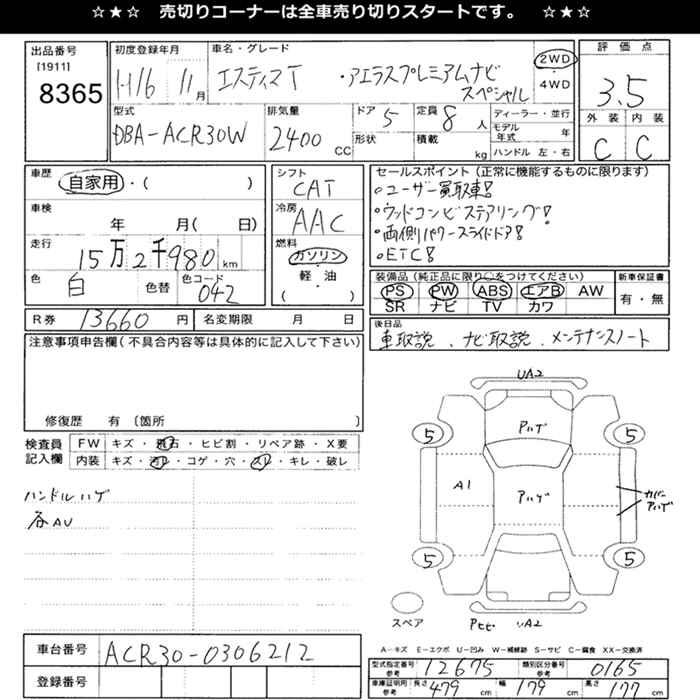 ☆★☆ 売切りコーナーは全車売り切りスタートです。 ☆★☆
出品番号
[1911]
8365
初度登録年月
H16 11月
車名・グレード
エスティマT ・アエラスプレミアムナビ
スペシャル
2WD
・
4WD
評価点
3.5
外装 内装
C C
型式
DBA-ACR30W
排気量
2400 CC
ドア 5
形状
定員 8人
積載 kg
ディーラー・並行
モデル年式 年
ハンドル 左・右
車歴
自家用・( )
車検
年 月( 日)
走行
15万2千980 km
色
白
色替
色コード
042
シフト
CAT
冷房
AAC
燃料
ガソリン
・
軽・油
( )
セールスポイント(正常に機能するものに限ります)
・ユーザー買取車!
・ウッドコンビステアリング!
・両側パワースライドドア!
・ETC!
装備品(純正品に限り○をつけてください)
PS PW ABS エアB AW
SR ナビ TV カワ
新車保証書
有・無
R券 13660 円 名変期限 月 日
後日品
車取説、ナビ取説、メンテナンスノート
注意事項申告欄(不具合内容等は具体的に記入して下さい)
修復歴 有 〔箇所 〕
検査員
記入欄
FW キズ・飛石・ヒビ割・リペア跡・X要
内装 キズ・汚レ・コゲ・穴・スレ・キレ・破レ
ハンドルハゲ
各AU
UA2
Pハゲ
5 5
A1
Pハゲ
カバー
Pハゲ
5 5
スペア
UA2
A-キズ E-エクボ U-凹み W-補修跡 S-サビ C-腐食 XX-交換済
車台番号 ACR30-0306212
登録番号
型式指定番号 参考 12675 類別区分番号 参考 0165
車庫証明用 参考 長さ 479 cm 幅 179 cm 高さ 177 cm